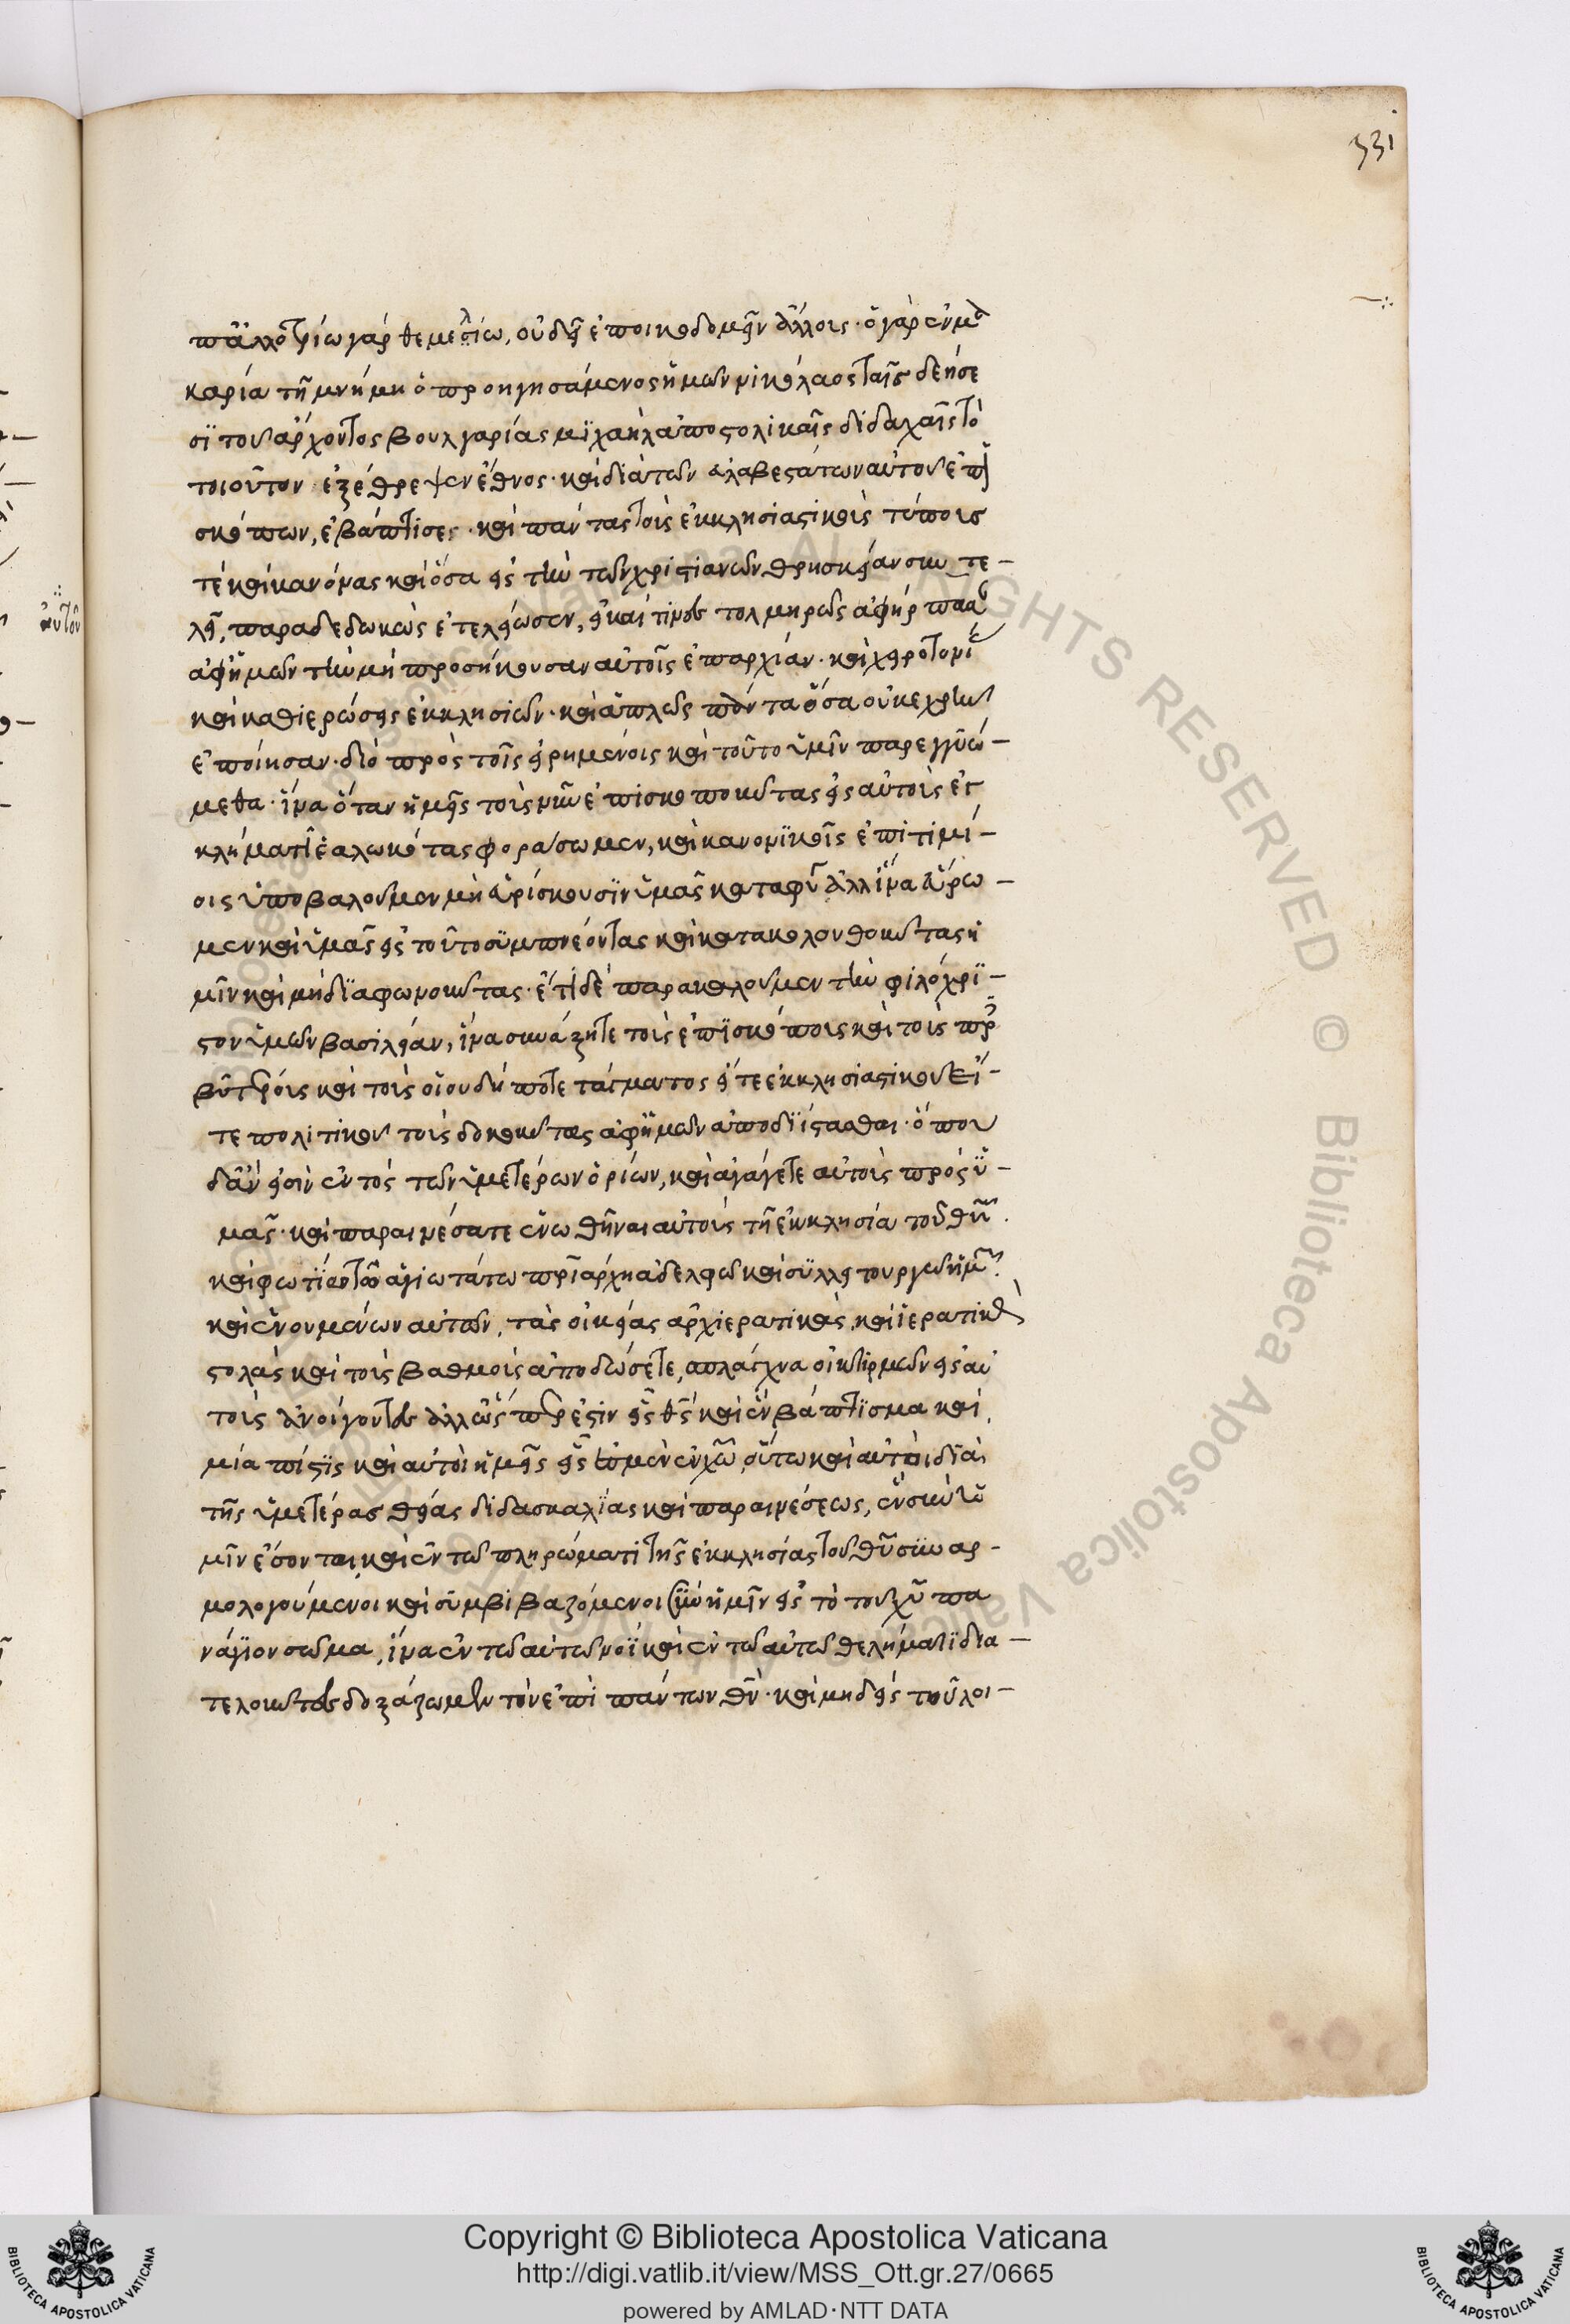 331
ἐπ' ἀλλοτρίω γὰρ θεμελίω, οὐδεὶς ἐποικοδομεῖν ἄλλοις · ὁ γὰρ ἐν μα
καρία τῆ μνήμη ὁ προηγησάμενος ἡμῶν νικόλαος ταῖς δεήσε
σϊ τοῦ ἄρχοντος βουλγαρίας μϊχαὴλ ἀποστολικαῖς διδαχαῖς τὸ
τοιοῦτον ἐξέθρεψεν ἔθνος · καὶ διὰ τῶν εὐλαβεστάτων αὐτοῦ ἐπι
σκόπων, ἐβάπτισε · καὶ πάντας τοῖς ἐκκλησιαστικοῖς τύποις
τὲ καὶ κανόνας καὶ ὅσα εἰς τὴν τῶν χριστιανῶν θρησκείαν συντε-
λεῖ, παραδεδωκὼς ἐτελείωσεν, εἰ καί τινες τολμηρῶς ἀφήρπασαν
ἀφ' ἡμῶν τὴν μὴ προσήκουσαν αὐτοῖς ἐπαρχίαν · καὶ χειροτονίας
καὶ καθιερώσεις ἐκκλησιῶν · καὶ ἁπλῶς πάντα ὅσα οὐκ ἐχρῆν
ἐποίησαν · διὸ πρὸς τοῖς εἰρημένοις καὶ τοῦτο ὑμῖν παρεγγυώ-
μεθα · ἵνα ὅταν ἡμεῖς τοὺς νῦν ἐπισκοποῦντας εἰς αὐτοὺς ἐγ
κλήματι ἑαλωκότας φοράσωμεν, καὶ κανονϊκοῖς ἐπιτιμί-
οις ὑποβαλοῦμεν μὴ εὑρίσκουσϊν ὑμᾶς καταφυ ἀλλ' ἵνα εὕρω-
μεν καὶ ὑμᾶς εἰς τοῦτο συμπνέοντας καὶ κατακολουθοῦντας ἡ
μῖν καὶ μὴ δϊαφωνοῦντας · ἔτι δὲ παρακαλοῦμεν τὴν φιλόχρϊ-
στον ὑμῶν βασιλείαν, ἵνα συνάξητε τοὺς ἐπϊσκόποις καὶ τοὺς πρε
βυτέροις καὶ τοὺς οἱουδήποτε τάγματος εἴτε ἐκκλησιαστικοῦ εἴ-
τε πολιτικοῦ τοὺς δοκοῦντας ἀφ' ἡμῶν ἀποδιΐστασθαι · ὅπου
δἂν εἰσὶν ἐντὸς τῶν ὑμετέρων ὁρίων, καὶ ἀγάγετε αὐτοὺς πρὸς ὑ-
μᾶς · καὶ παραινέσατε ἑνωθῆναι αὐτοὺς τῆ ἐκκλησία τοῦ θῦ
καὶ φωτίω τῶ ἁγιωτάτω πριάρχη ἀδελφῶ καὶ συλλειτουργῶ ἡμῶν
καὶ ἑνουμένων αὐτῶν, τὰς οἰκείας ἀρχιερατικὰς, καὶ ἱερατικὰς
στολὰς καὶ τοὺς βαθμοὺς ἀποδώσετε, σπλάγχνα οἰκτιρμῶν εἰς αὐ
τοὺς ἀνοίγοντες ἀλλ' ὡς πρ ἐστὶν εἷς θς καὶ ἓν βάπτϊσμα καὶ
μία πίστϊς καὶ αὐτοὶ ἡμεῖς εἷς ἐσμὲν ἐν χω, οὕτω καὶ αὐτοὶ διὰ
τῆς ὑμετέρας θείας διδασκαλϊας καὶ παραινέσεως, ἓν σὺν ὑ
μῖν ἔσονται καὶ ἐν τῶ πληρώματι τῆς ἐκκλησίας τοῦ θυ συναρ-
μολογούμενοι καὶ συμβιβαζόμενοι σὺν ἡμῖν εἰς τὸ τοῦ χυ πα
νάγιον σῶμα, ἵνα ἐν τῶ αὐτῶ νοῒ καὶ ἐν τῶ αὐτῶ θελήματϊ δια-
τελοῦντες δοξάζωμεν τὸν ἐπὶ πάντων θν · καὶ μηδεὶς τοῦ λοι-